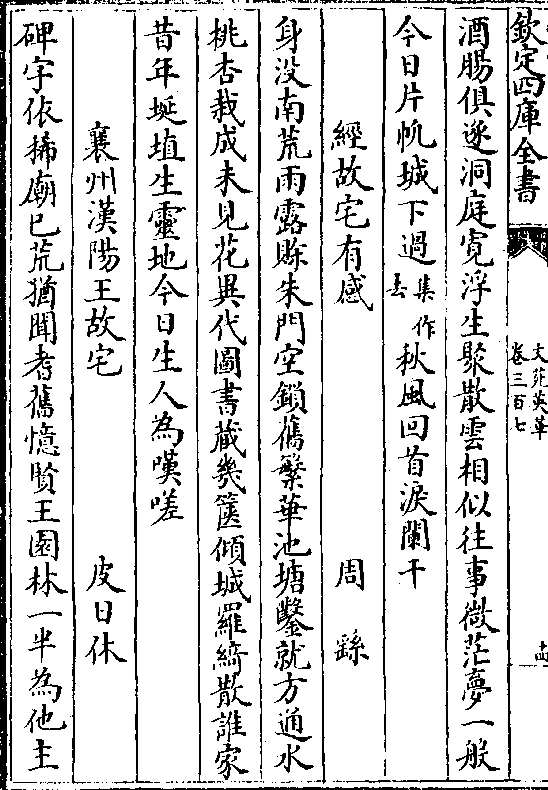 欽定四庫全書
文苑英華
卷三百七
酒腸俱逐洞庭寛浮生聚散雲相似往事微茫夢一般
今日片帆城下過集作去秋風回首淚闌干
經故宅有感 周繇
身没南荒雨露賖朱門空鎖舊繁華池塘鑿就方通水
桃杏栽成未見花異代圖書藏幾篋傾城羅綺散誰家
昔年埏埴生靈地今日生人為嘆嗟
襄州漢陽王故宅 皮日休
碑字依稀廟已荒猶聞耆舊憶賢王園林一半為他主